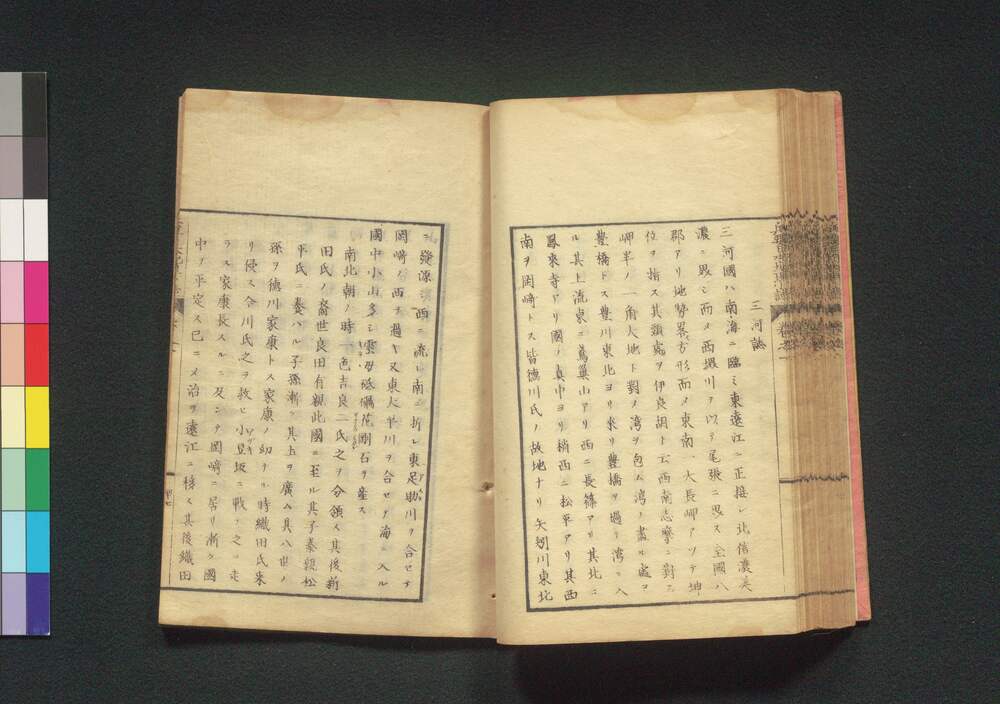 三河誌
三河國ハ南海ニ臨ミ東遠江ニ正接シ北信濃美
濃ニ界シ而メ西堺川ヲ以テ尾張ニ界ス全國八
郡アリ地勢畧方形而メ東南一大長岬アツテ坤
位ヲ指ス其頭處ヲ伊良胡ト云西南志摩ニ對ス
岬半ノ一角大地ト對メ湾ヲ包ム湾ノ盡ル處ヲ
豊橋トス豊川東北ヨリ來リ豊橋ヲ過テ湾ニ入
ル其上流東ニ鳶巢山アリ西ニ長篠アリ其北ニ
鳳來寺アリ國ノ真中ヨリ稍西ニ松平アリ其西
南ヲ岡﨑トス皆德川氏ノ故地ナリ矢矧川東北
ニ發源シ西ニ流レ南ニ折レ東足助川ヲ合セテ
岡﨑ノ西ヲ過キ又東大平川ヲ合セテ海ニ入ル
國中小山多ミ雲母砥礪花剛石ヲ産ス
南北朝ノ時一色吉良二氏之ヲ分領ス其後新
田氏ノ裔世良田有親此國ニ至ル其子泰親松
平氏ニ養ハル子孫漸ク其土ヲ廣ム其八世ノ
孫ヲ德川家康トス家康ノ幼ナル時織田氏来
リ侵ス今川氏之ヲ救ヒ小豆坂ニ戰テ之ヲ走
ラス家康長スルニ及ンテ岡﨑ニ居リ漸ク國
中ヲ平定ス已ニメ治ヲ遠江ニ移ス其後織田